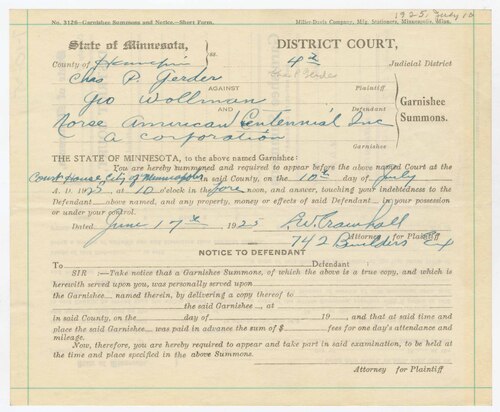 1925, July 10
No. 3126—Garnishee Summons and Notice.—Short Form. Miller-Davis Company, Mfg. Stationers, Minneapolis, Minn.
State of Minnesota, ss. DISTRICT COURT,
County of Hennepin 4th Judicial District
Chas P. Gerder Chas P. Gerder Plaintiff
AGAINST
Geo Wollman Defendant
AND
Norse American Centennial Inc
a corporation Garnishee
Garnishee Summons.
THE STATE OF MINNESOTA, to the above named Garnishee:
You are hereby summoned and required to appear before the above named Court at the
Court House, City of Minneapolis in said County, on the 10th day of July
A. D. 1925 at 10 o'clock in the fore noon, and answer, touching your indebtedness to the
Defendant above named, and any property, money or effects of said Defendant in your possession
or under your control.
Dated June 17th 1925 Attorney for Plaintiff
742 Builders Ex
NOTICE TO DEFENDANT
To Defendant :
SIR :—Take notice that a Garnishee Summons, of which the above is a true copy, and which is
herewith served upon you, was personally served upon
the Garnishee named therein, by delivering a copy thereof to
the said Garnishee, at
in said County, on the day of 19 , and that at said time and
place the said Garnishee was paid in advance the sum of $ fees for one day's attendance and
mileage.
Now, therefore, you are hereby required to appear and take part in said examination, to be held
at the time and place specified in the above Summons.
Attorney for Plaintiff